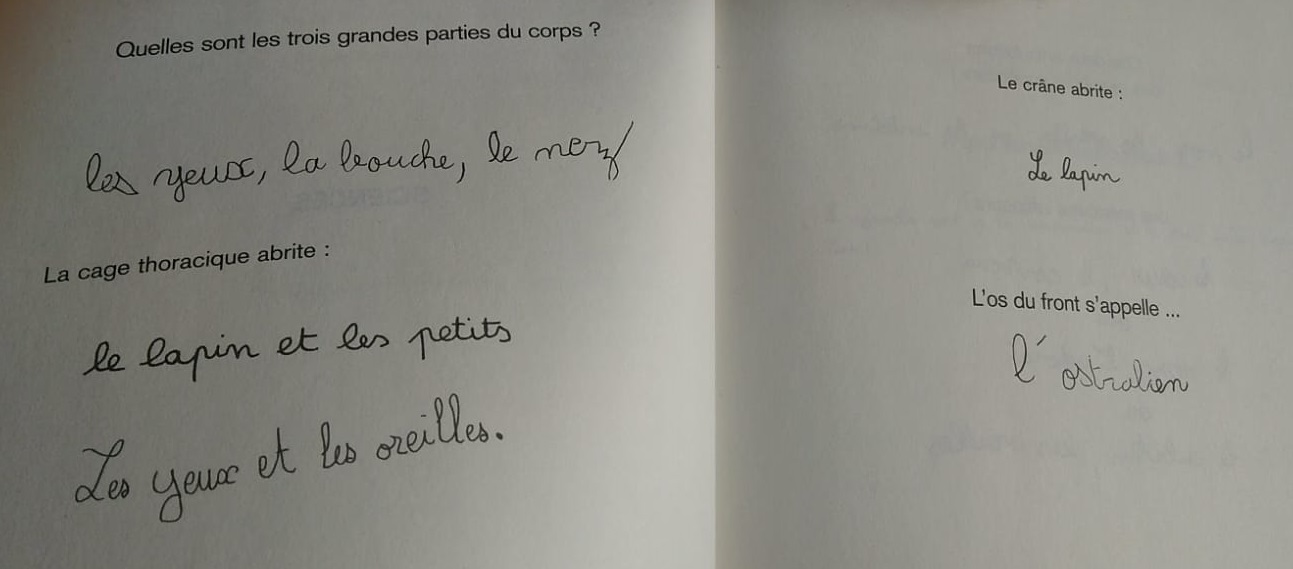 Quelles sont les trois grandes parties du corps ?
les yeux, la bouche, le nez
La cage thoracique abrite :
le lapin et les petits
Les yeux et les oreilles.
Le crâne abrite :
Le lapin
L'os du front s'appelle ...
l'ostralien